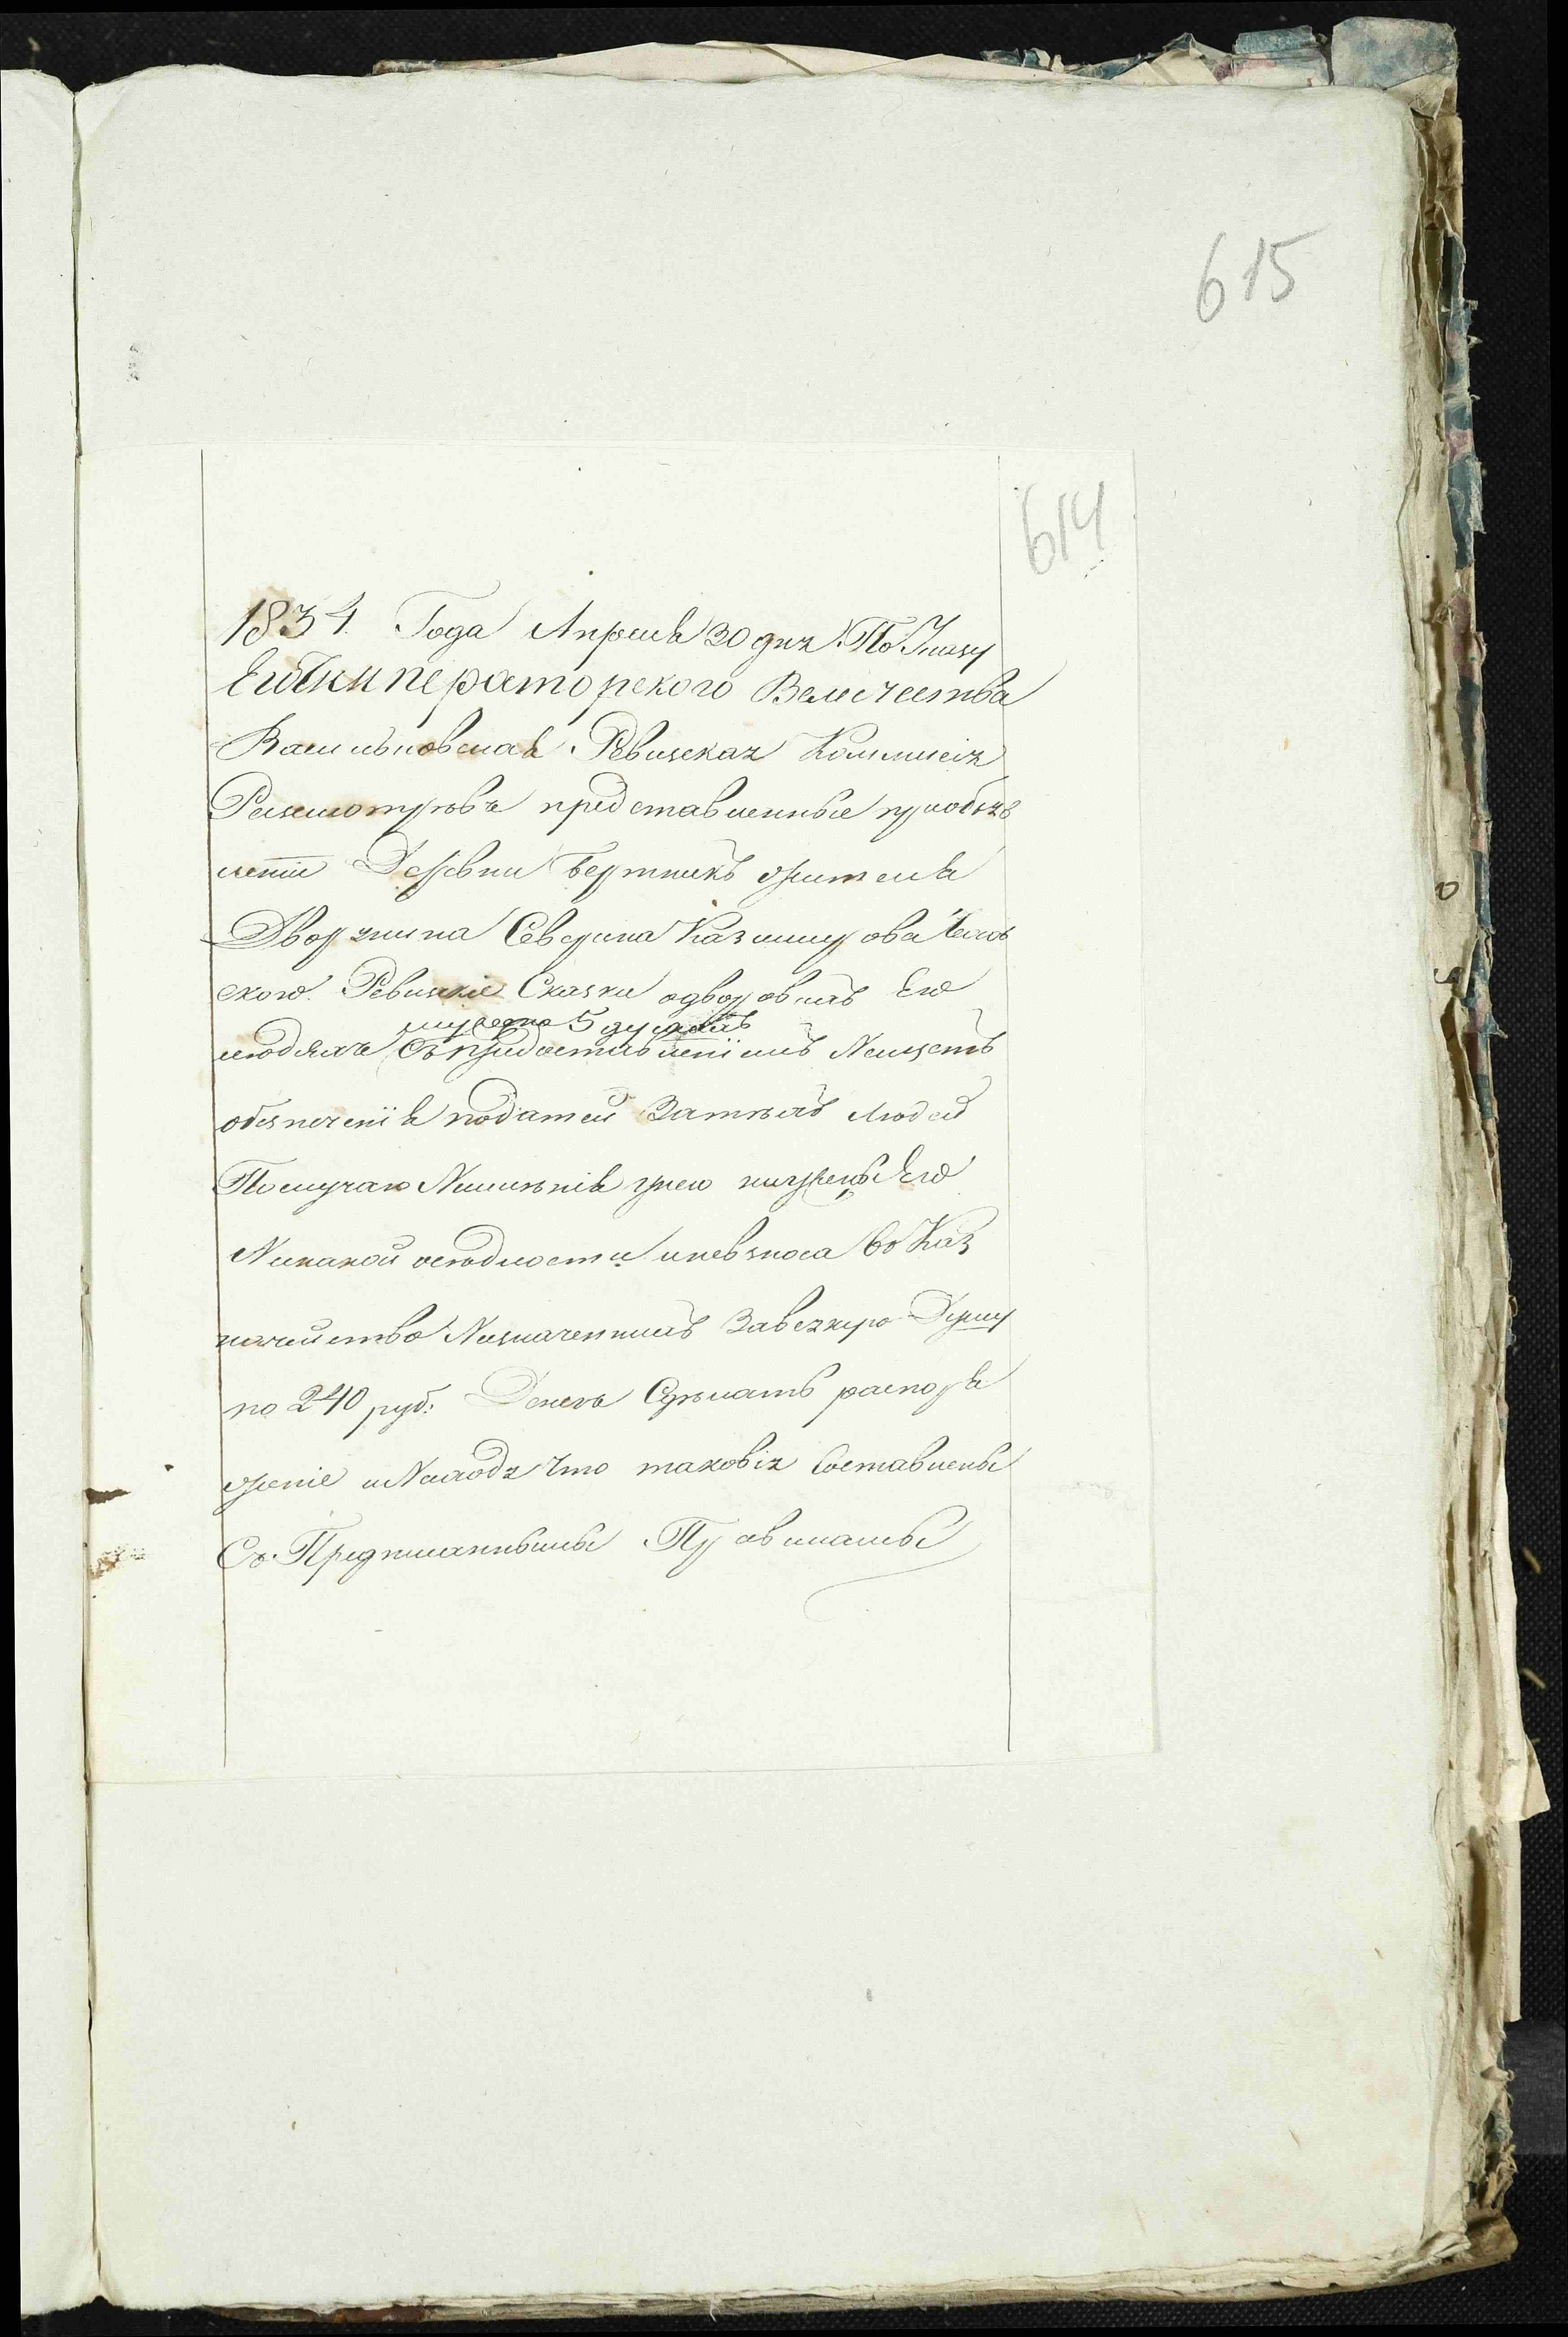 615
614
1834. Года Апреля 30 дня По Указу
Его Императорского Величества
Васильковская Ревизская Коммисія
Разсмотревъ представленные при объяв
леніи Деревни жителя
Дворянина Северина Казимирова
ского Ревизкіе Сказки о дворовыхъ Его
мужеска 5 душахъ
людяхъ съ предоставленіемъ Насчетъ
обезпеченія податей Затехъ людей
Послучаю Неименія
Никакой оседлости и невзноса въ Каз
начейство Назначеннихъ Завсякую Душу
по 240 руб: Денегъ Сделать распоря
женіе и Находя Что таковія Составлены
Съ Предписанными Правилами